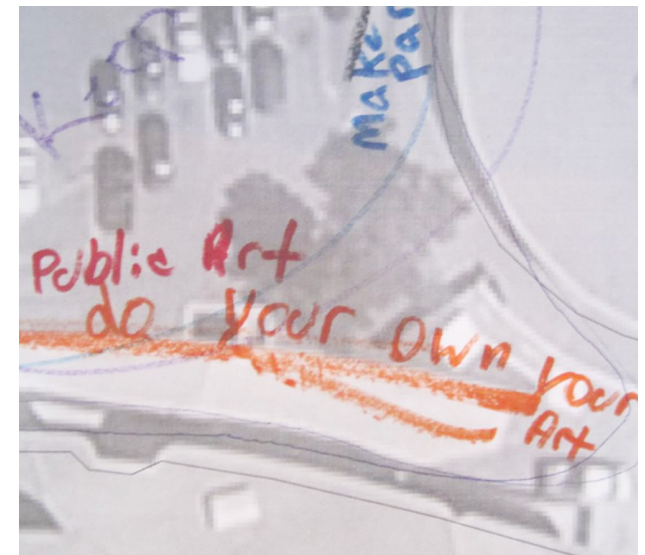 Make
par
Public Art
do your own your
Art